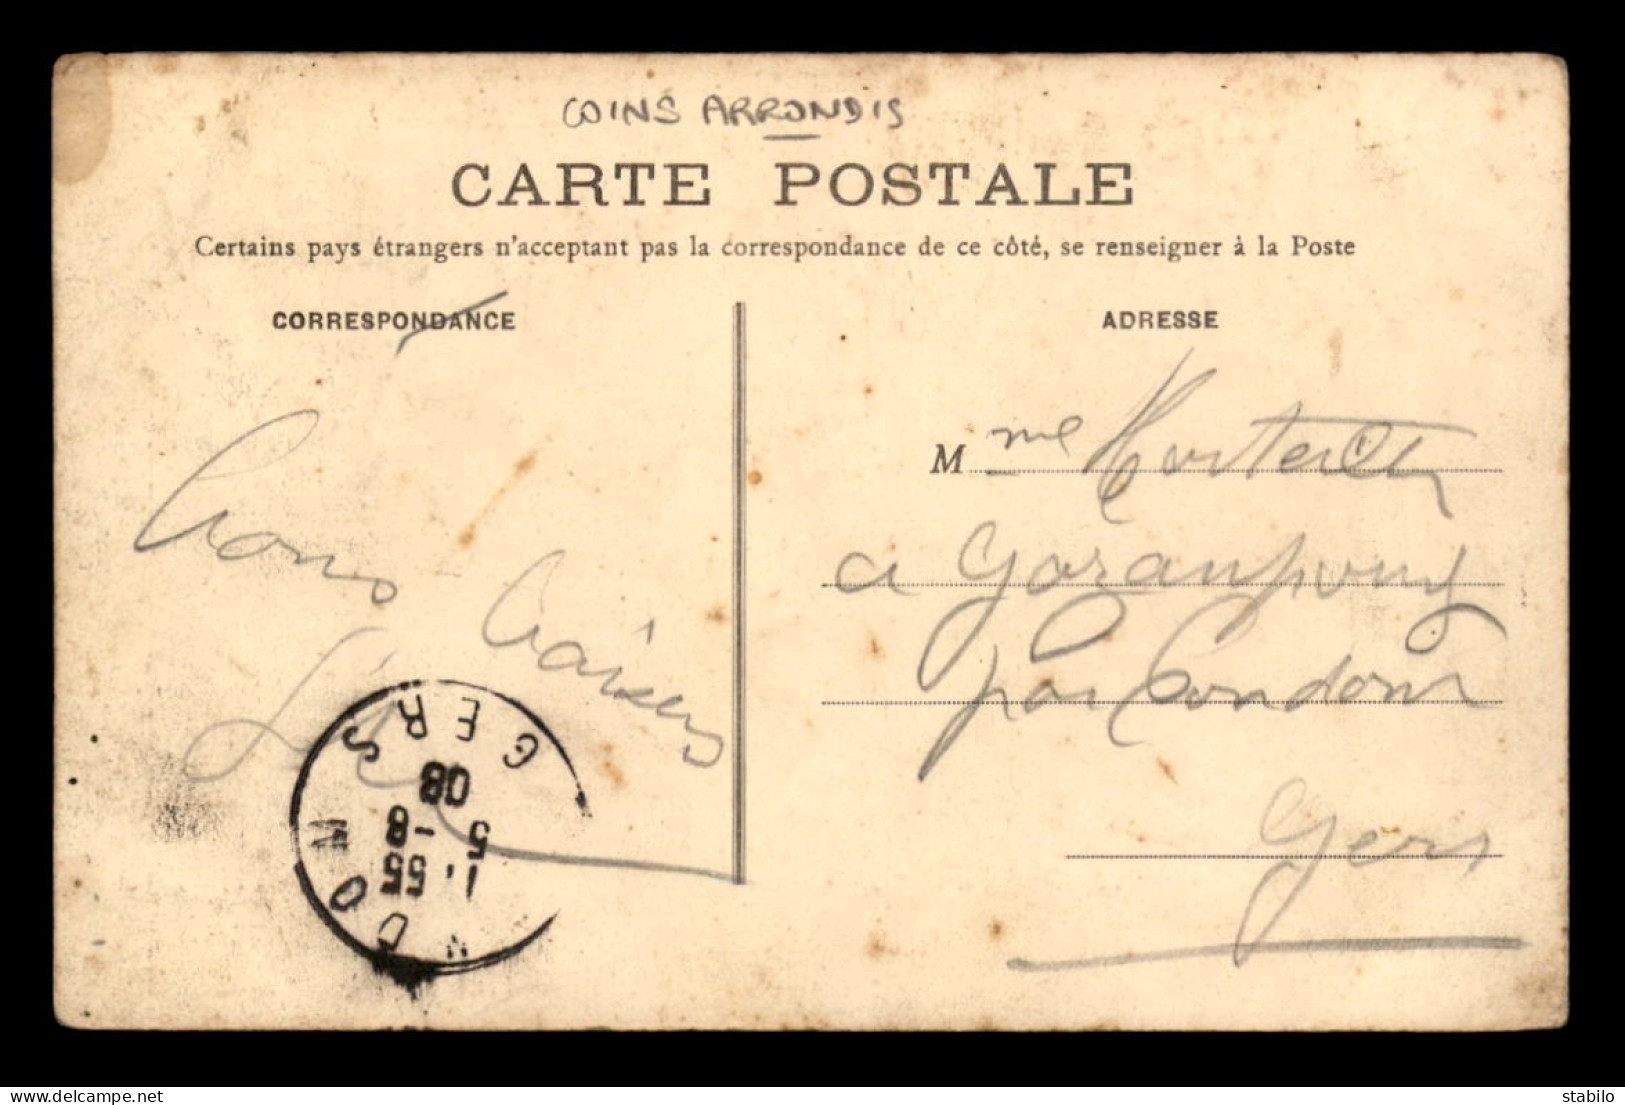 COINS ARRONDIS
CARTE POSTALE
Certains pays étrangers n'acceptant pas la correspondance de ce côté, se renseigner à la Poste
CORRESPONDANCE
ADRESSE
Bons
Baisers
Mme
a
par Condom
Gers
GERS
08
5 - 8
1. 55
delcampe.net
stabilo